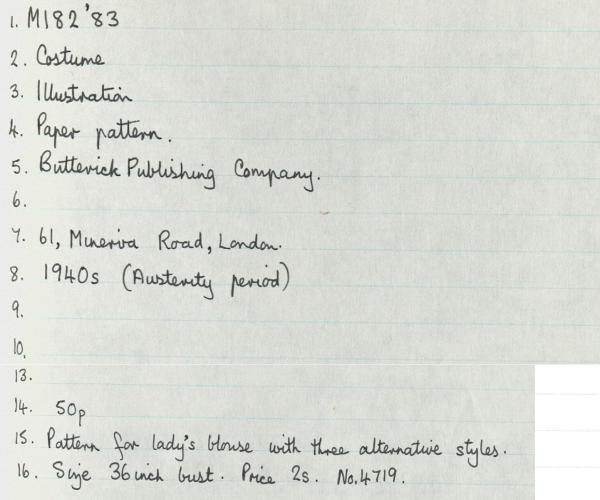 1. M182 '83
2. Costume
3. Illustration
4. Paper pattern.
5. Butterick Publishing Company.
6.
7. 61, Minerva Road, London.
8. 1940s (Austerity period)
9.
10.
13.
14. 50p
15. Pattern for lady's blouse with three alternative styles.
16. Size 36 inch bust. Price 2s. No.4719.